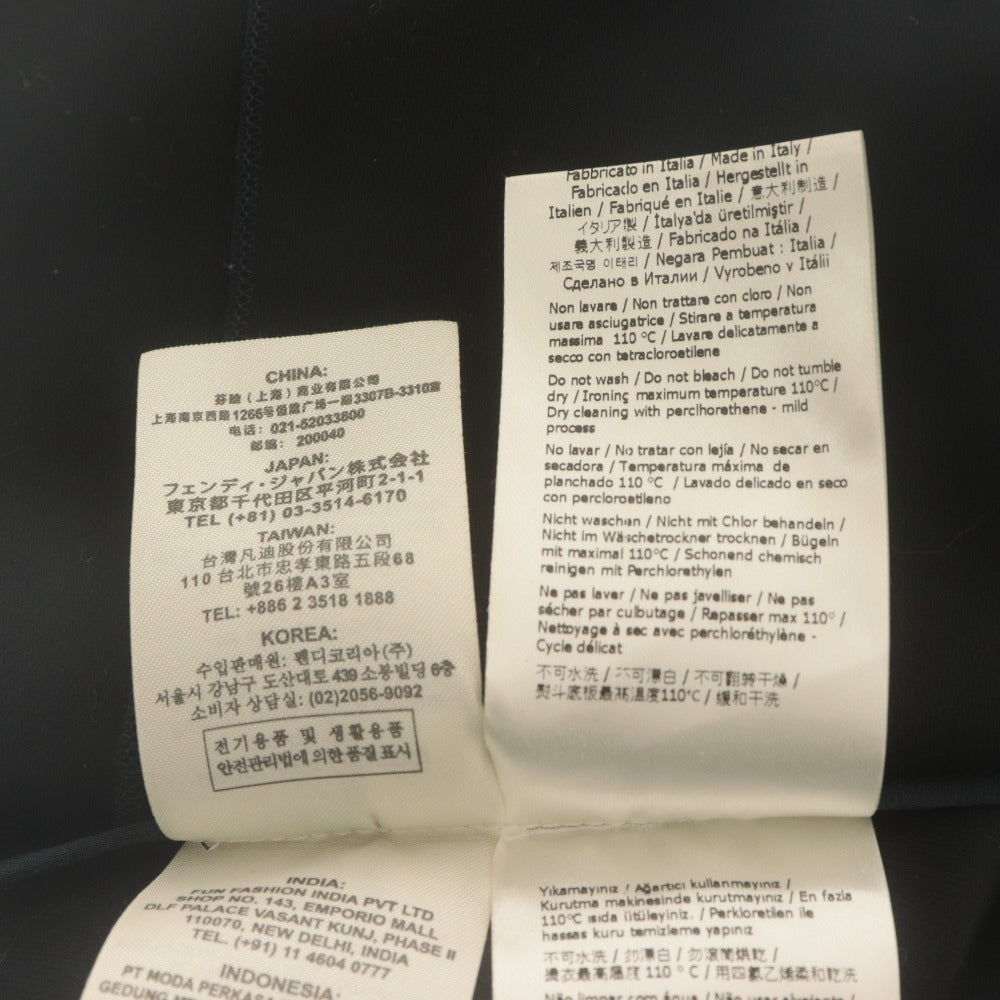 CHINA:
芬迪（上海）商业有限公司
上海南京西路1266号恒隆广场一期3307B-3310室
电话：021-52033800
邮编：200040
JAPAN:
フェンディ・ジャパン株式会社
東京都千代田区平河町2-1-1
TEL (+81) 03-3514-6170
TAIWAN:
台灣凡迪股份有限公司
110 台北市忠孝東路五段68
號26樓A3室
TEL: +886 2 3518 1888
KOREA:
수입판매원: 펜디코리아(주)
서울시 강남구 도산대로 439 소봉빌딩 6층
소비자 상담실: (02)2056-9092
전기용품 및 생활용품
안전관리법에 의한 품질 표시
INDIA:
FUN FASHION INDIA PVT LTD
SHOP NO. 143, EMPORIO MALL
DLF PALACE VASANT KUNJ, PHASE II
110070, NEW DELHI, INDIA
TEL. (+91) 11 4604 0777
INDONESIA:
PT MODA PERKASA
GEDUNG
Fabbricato in Italia / Made in Italy /
Fabricado en Italia / Hergestellt in
Italien / Fabriqué en Italie / 意大利制造 /
イタリア製 / İtalya'da üretilmiştir /
義大利製造 / Fabricado na Itália /
제조국명 이태리 / Negara Pembuat : Italia /
Сделано в Италии / Vyrobeno v Itálii
Non lavare / Non trattare con cloro / Non
usare asciugatrice / Stirare a temperatura
massima 110 °C / Lavare delicatamente a
secco con tetracloroetilene
Do not wash / Do not bleach / Do not tumble
dry / Ironing maximum temperature 110°C /
Dry cleaning with perclhorethene - mild
process
No lavar / No tratar con lejía / No secar en
secadora / Temperatura máxima de
planchado 110 °C / Lavado delicado en seco
con percloroetileno
Nicht waschen / Nicht mit Chlor behandeln /
Nicht im Wäschetrockner trocknen / Bügeln
mit maximal 110°C / Schonend chemisch
reinigen mit Perchlorethylen
Ne pas laver / Ne pas javelliser / Ne pas
sécher par culbutage / Repasser max 110° /
Nettoyage à sec avec perchloréthylène -
Cycle délicat
不可水洗 / 不可漂白 / 不可翻转干燥 /
熨斗底板最高温度110°C / 缓和干洗
Yıkamayınız / Ağartıcı kullanmayınız /
Kurutma makinesinde kurutmayınız / En fazla
110°C ısıda ütüleyiniz. / Perkloretilen ile
hassas kuru temizleme yapınız
不可水洗 / 勿漂白 / 勿滾筒烘乾 /
燙衣最高溫度 110 °C / 用四氯乙烯柔和乾洗
Não limpar com água / Não usar alvejante